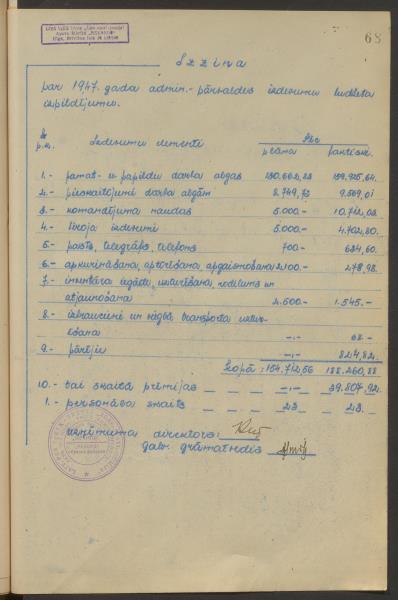 68
Izziņa
par 1947. gada admin.- pārvaldes izdevumu budžeta
izpildījumu.
№ p.k. Izdevumu elementi Rbļ
plānā faktiski
1.- pamat- un papildu darba algas 130.662,28 159.925,64.
2.- pieskaitījumi darba algām 8.749,72 9.569,01
3.- komandējuma naudas 5.000.- 10.712,03.
4.- biroja izdevumi 5.000.- 4.702,80.
5.- pasts, telegrāfs, telefons 700.- 624,60.
6.- apkurināšana, aptīrīšana, apgaismošana 2.100.- 278,98.
7.- inventāra iegāde, uzturēšana, nodilums un
atjaunošana 2.500.- 1.545.-
8.- izbraucieni un vieglā transporta uztu-
rēšana -.- 68.-
9.- pārējie -.- 824,82.
Kopā: 154.712,56 188.260,88
10.- tai skaitā prēmijas -.- 39.807,92.
1.- personāla skaits 23 23.-
uzņēmuma direktors:
galv. grāmatvedis